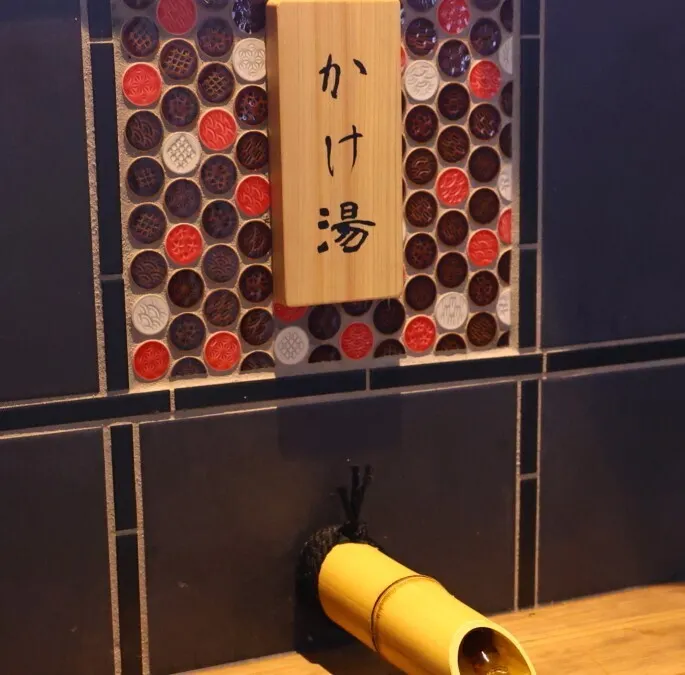 かけ湯